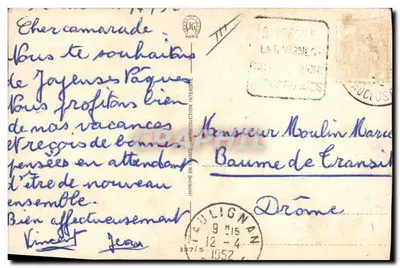 Cher camarade
Nous te souhaitons
de Joyeuses Pâques
Nous profitons bien
de nos vacances
et reçois de bonnes
pensées en attendant
d'être de nouveau
ensemble.
Bien affectueusement
Vincent Jean
JG
PARIS
Monsieur Moulin Marce
Baume de Transit
Drôme
TAULIGNAN
9 H 15
12 - 4
1952
VAUCLUSE